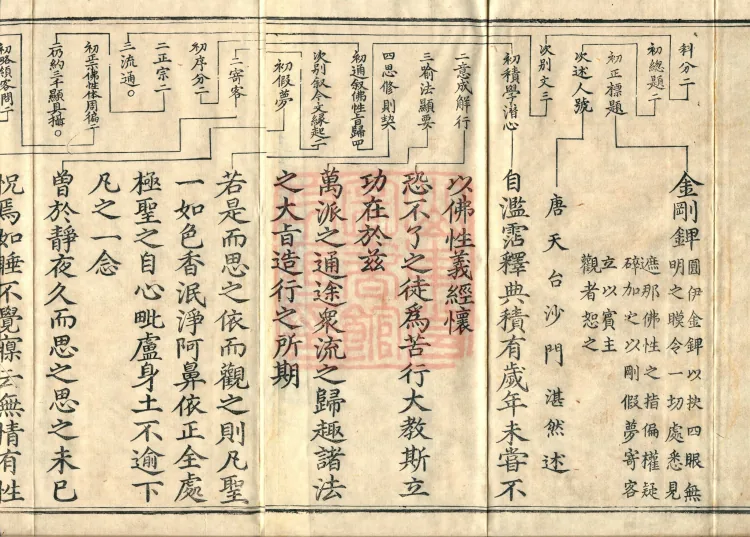 科分二
初總題二
初正標題
次述人號
次別文三
初積學潛心
二意成解行
三喻法顯要
四思修則契
初通敘佛性旨歸四
次別敘今文緣起二
初假夢
二寄客
初序分二
二正宗二
三流通。
初正宗佛性体周徧二
約三千顯具攝。
初略領客問二
金剛錍
圓伊金錍以抉四眼無
明之膜令一切處悉見
遮那佛性之指偏權疑
碎加之以剛假夢寄客
立以賓主
觀者恕之
唐天台沙門湛然述
自濫霑釋典積有歲年未嘗不
以佛性義經懷
恐不了之徒為苦行大教斯立
功在於茲
萬派之通途眾流之歸趣諸法
之大旨造行之所期
若是而思之依而觀之則凡聖
一如色香泯淨阿鼻依正全處
極聖之自心毗盧身土不逾下
凡之一念
曾於靜夜久而思之思之未已
怳焉如睡不覺寱云無情有性